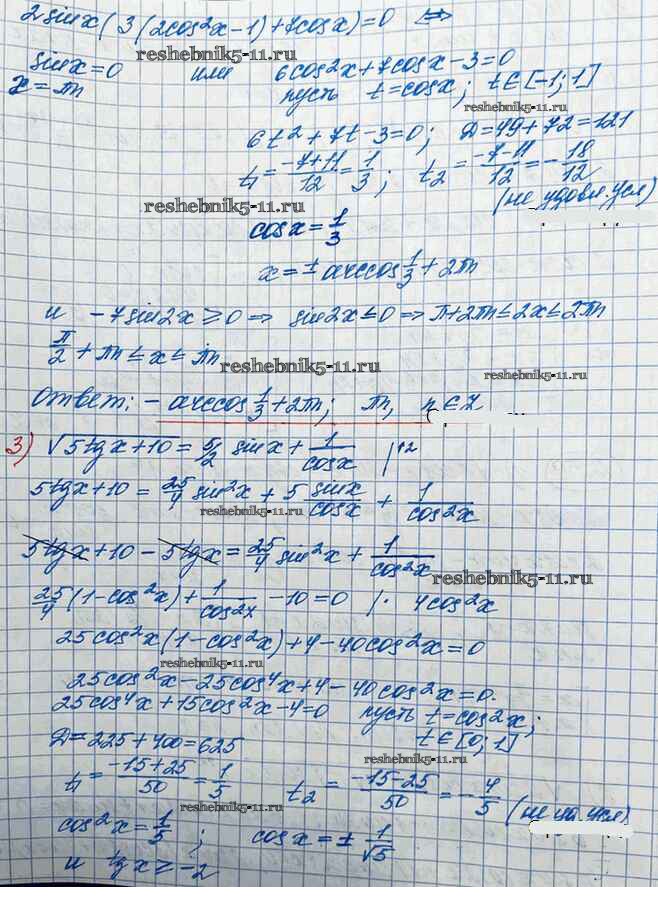 2sinx(3(2cos²x-1)+7cosx)=0 ⇔
reshebnik5-11.ru
sinx=0 или 6cos²x+7cosx-3=0
x=πn пусть t=cosx; t∈[-1;1]
reshebnik5-11.ru
6t²+7t-3=0; D=49+72=121
t₁=(-7+11)/12=1/3; t₂=(-7-11)/12=-18/12
(не удовл. усл)
reshebnik5-11.ru
cosx=1/3
x=±arccos1/3+2πn
и -7sin2x≥0 ⇒ sin2x≤0 ⇒ π+2πn≤2x≤2πn
π/2+πn≤x≤πn
reshebnik5-11.ru
reshebnik5-11.ru
Ответ: -arccos1/3+2πn; πn, n∈Z
3) √5tgx+10=5/2 sinx+1/cosx |²
reshebnik5-11.ru
5tgx+10=25/4 sin²x+5 sinx/cosx+1/cos²x
reshebnik5-11.ru
5tgx+10-5tgx=25/4 sin²x+1/cos²x
reshebnik5-11.ru
25/4(1-cos²x)+1/cos²x-10=0 |· 4cos²x
25cos²x(1-cos²x)+4-40cos²x=0
reshebnik5-11.ru
25cos²x-25cos⁴x+4-40cos²x=0.
25cos⁴x+15cos²x-4=0 пусть t=cos²x;
D=225+400=625 t∈[0;1]
reshebnik5-11.ru
t₁=(-15+25)/50=1/5 t₂=(-15-25)/50=-4/5
reshebnik5-11.ru
cos²x=1/5; cosx=±1/√5
и tgx≥-2